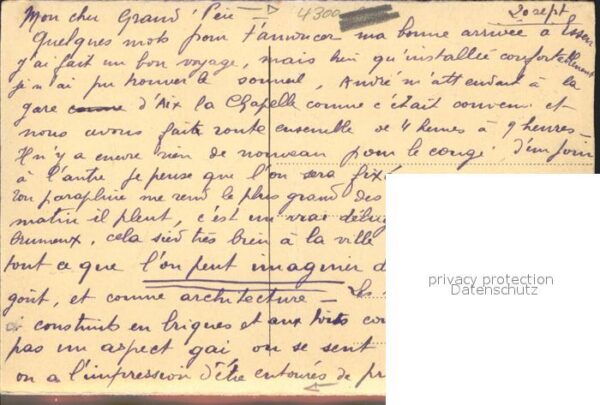 Mon cher Grand' Père 4300 20 sept.
Quelques mots pour t'annoncer ma bonne arrivée à Essen
j'ai fait un bon voyage, mais bien qu'installée confortablement
je n'ai pu trouver le sommeil, André m'attendait à la
gare d'Aix la Chapelle comme c'était convenu et
nous avons faite route ensemble de 4 heures à 9 heures -
Il n'y a encore rien de nouveau pour le congé. d'un jour
à l'autre je pense que l'on sera fixé
ton parapluie me rend le plus grand des
matin il pleut, c'est un vrai délug
brumeux, cela sied très bien à la ville
tout ce que l'on peut imaginer d
goût, et comme architecture -
construits en briques et aux toits co
pas un aspect gai on se sent
on a l'impression d'être entourés de pr
privacy protection
Datenschutz